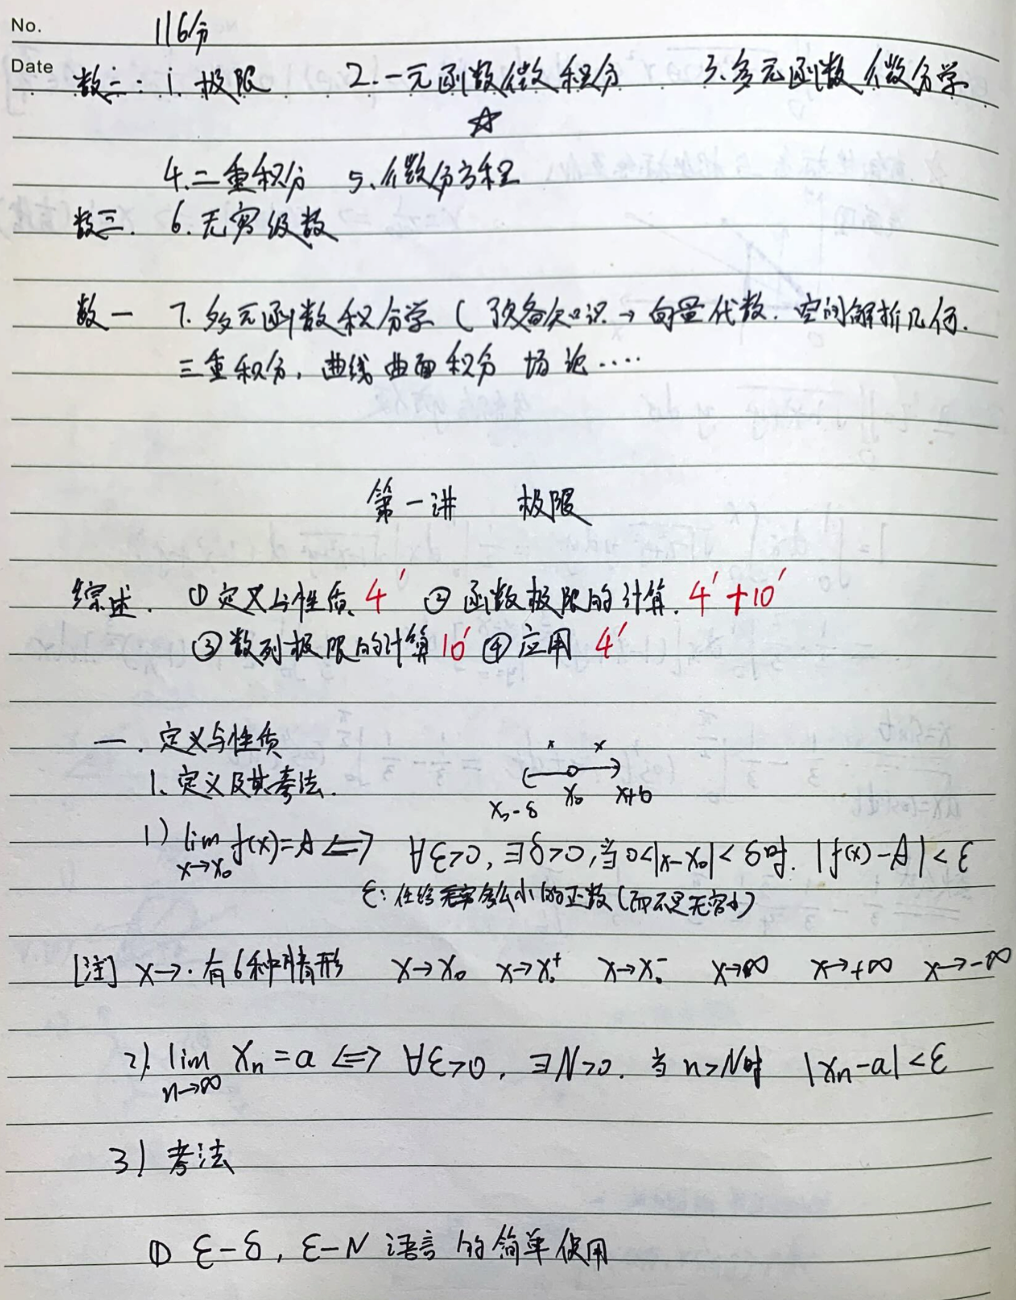 No. 116分
Date 数二：1.极限 2.一元函数微积分 3.多元函数微分学
☆
4.二重积分 5.微分方程
数三. 6.无穷级数
数一 7.多元函数积分学（预备知识→向量代数.空间解析几何.
三重积分，曲线曲面积分 场论····
第一讲 极限
综述. ①定义与性质 4′ ②函数极限的计算. 4′+10′
③数列极限的计算 10′ ④应用 4′
一.定义与性质
1.定义及其考法.
x x
x₀-δ x₀ x+δ
1) lim f(x)=A ⟺ ∀ε>0,∃δ>0,当0<|x-x₀|<δ时. |f(x)-A|<ε
x→x₀
ε:任给 多么小的正数(而不是无穷小)
[注] x→·有6种情形 x→x₀ x→x₀⁺ x→x₀⁻ x→∞ x→+∞ x→-∞
2). lim xₙ=a ⟺ ∀ε>0. ∃N>0. 当n>N时 |xₙ-a|<ε
n→∞
3) 考法
① ε-δ, ε-N 语言的简单使用